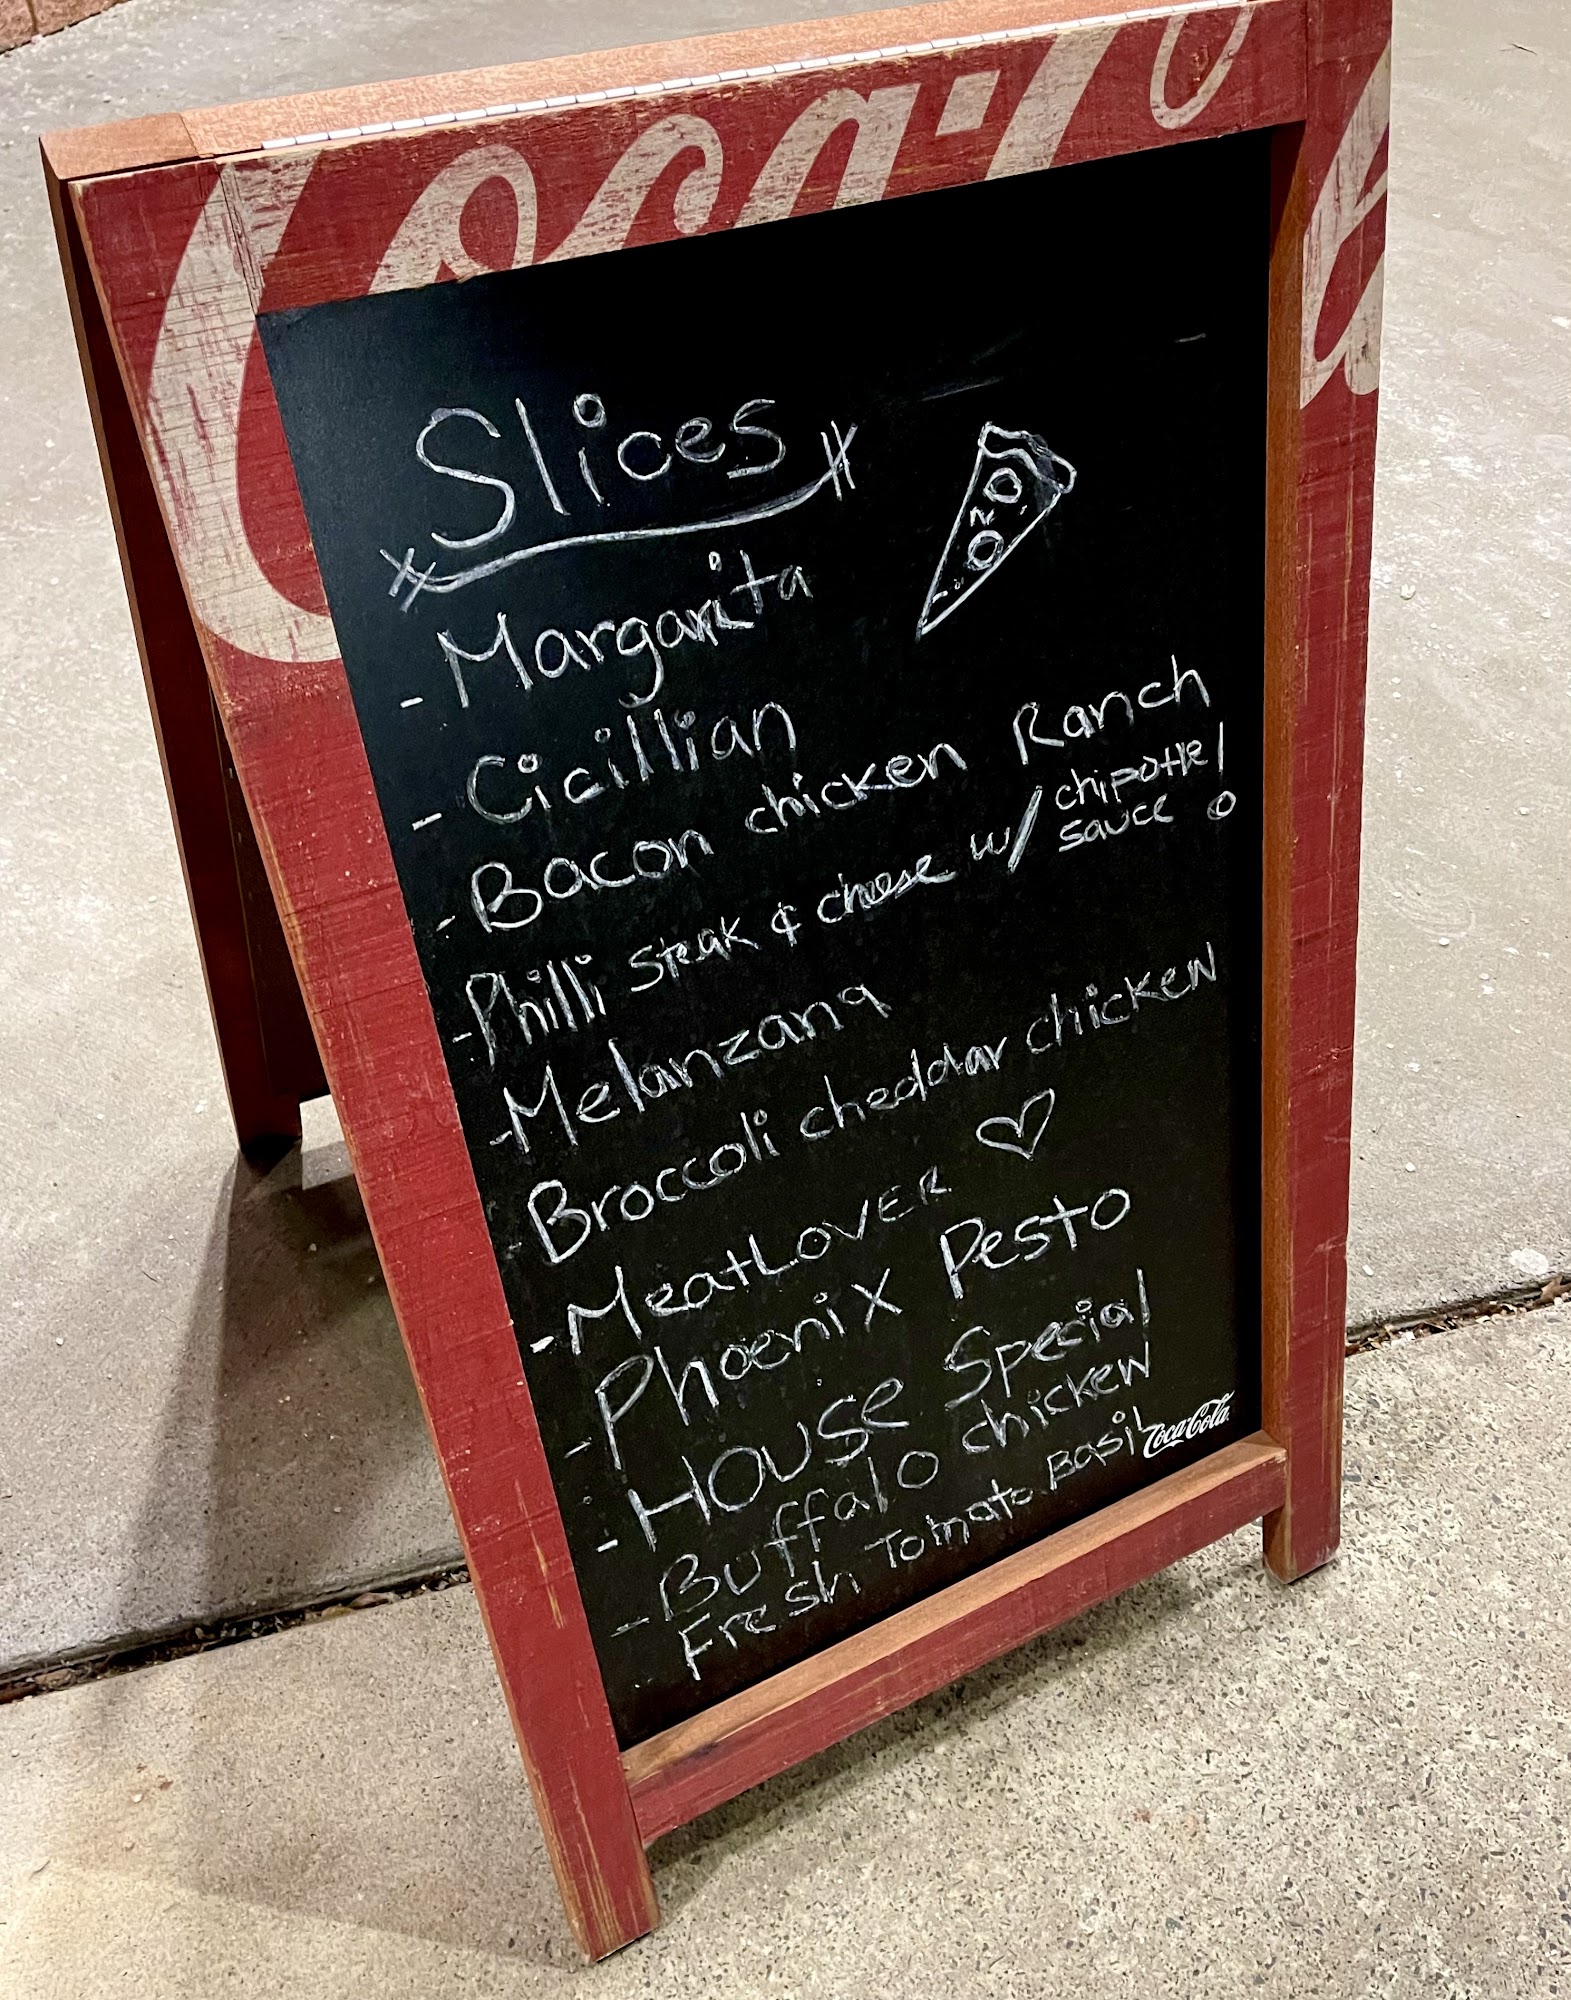 Coca-Co
Slices
- Margarita
- Cicillian
- Bacon chicken Ranch
- Philli steak & cheese w/ chipotle/
sauce
- Melanzana
Broccoli cheddar chicken
- MeatLover ♡
- Phoenix Pesto
- HOUSE Special
- Buffalo chicken
Fresh Tomato Basil
Coca-Cola